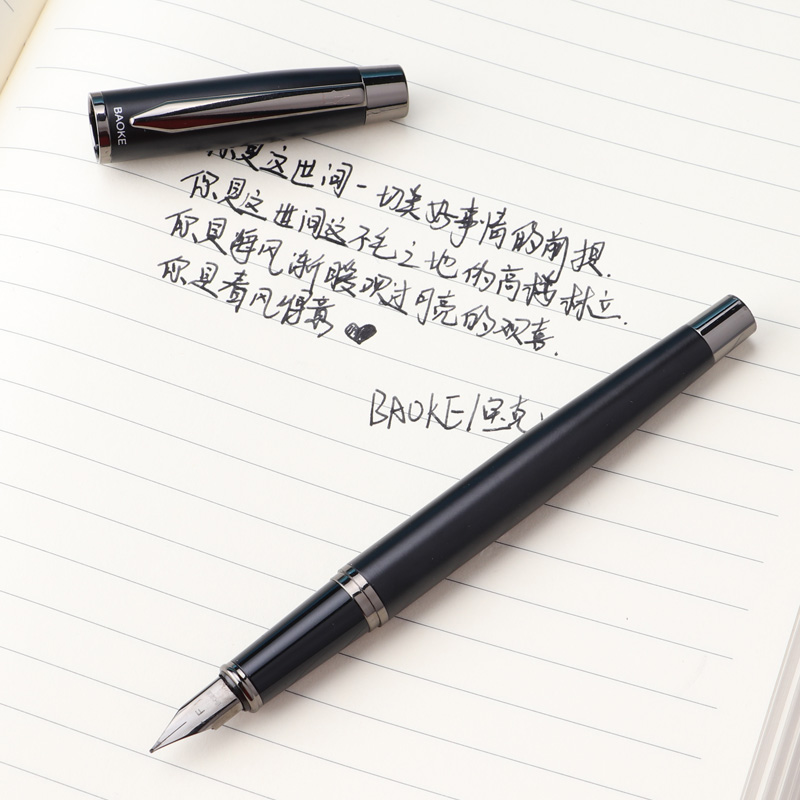 BAOKE
你是这世间一切美好事情的前提.
你是这世间这不毛之地的高楼林立.
你是静风渐暖观过月亮的欢喜.
你是春风得意
BAOKE/宝克.
F